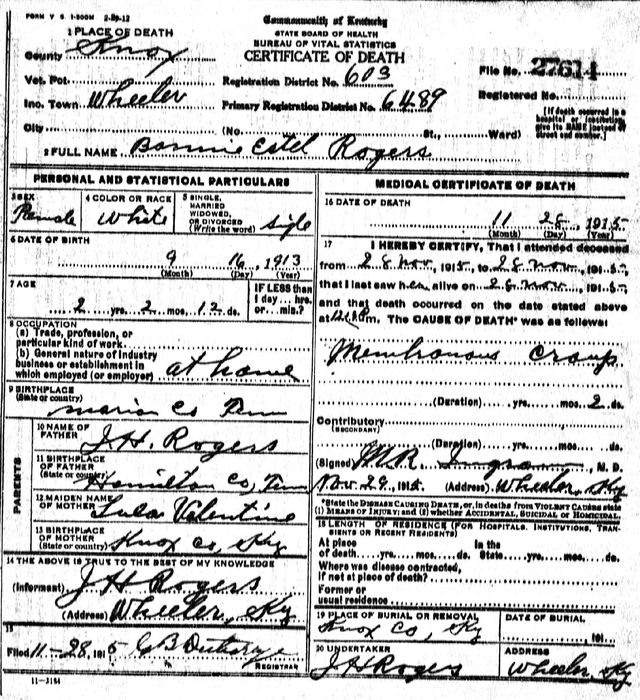 FORM V S. 1-500M 2-29-12
Commonwealth of Kentucky
STATE BOARD OF HEALTH
BUREAU OF VITAL STATISTICS
CERTIFICATE OF DEATH
1 PLACE OF DEATH
County Knox
Vot. Pot.
Registration District No. 603
File No. 27614
Inc. Town Wheeler
Primary Registration District No. 6489
Registered No.
City (No. St., Ward)
[If death occurred in a hospital or institution, give its NAME instead of street and number.]
2 FULL NAME Bonnie Estel Rogers
PERSONAL AND STATISTICAL PARTICULARS
3 SEX Female
4 COLOR OR RACE White
5 SINGLE, MARRIED WIDOWED, OR DIVORCED (Write the word) Single
6 DATE OF BIRTH
9 16, 1913
(Month) (Day) (Year)
7 AGE
2 yrs. 2 mos. 12 ds.
IF LESS than 1 day... hrs. or... min.?
8 OCCUPATION
(a) Trade, profession, or particular kind of work
(b) General nature of industry business or establishment in which employed (or employer) at home
9 BIRTHPLACE
(State or country) Marion Co Tenn
PARENTS
10 NAME OF FATHER J.H. Rogers
11 BIRTHPLACE OF FATHER (State or country) Hamilton Co, Tenn
12 MAIDEN NAME OF MOTHER Lula Valentine
13 BIRTHPLACE OF MOTHER (State or country) Knox Co, Ky
14 THE ABOVE IS TRUE TO THE BEST OF MY KNOWLEDGE
(Informant) J H Rogers
(Address) Wheeler, Ky
15
Filed 11-28, 1915
REGISTRAR
11-3184
MEDICAL CERTIFICATE OF DEATH
16 DATE OF DEATH
11 28, 1915
(Month) (Day) (Year)
17 I HEREBY CERTIFY, That I attended deceased
from 28 Nov, 1915, to 28 Nov, 1915,
that I last saw her alive on 28 Nov, 1915,
and that death occurred on the date stated above
at m. The CAUSE OF DEATH* was as follows:
Membranous Croup
(Duration) yrs. mos. 2 ds.
Contributory
(SECONDARY)
(Duration) yrs. mos. ds.
(Signed) M.R. , M. D.
Nov. 29, 1915 (Address) Wheeler, Ky
*State the DISEASE CAUSING DEATH, or, in deaths from VIOLENT CAUSES state (1) MEANS OF INJURY; and (2) whether ACCIDENTAL, SUICIDAL or HOMICIDAL.
18 LENGTH OF RESIDENCE (FOR HOSPITALS, INSTITUTIONS, TRANSIENTS OR RECENT RESIDENTS)
At place of death yrs. mos. ds. In the State yrs. mos. ds.
Where was disease contracted,
if not at place of death?
Former or
usual residence
19 PLACE OF BURIAL OR REMOVAL Knox Co, Ky
DATE OF BURIAL , 191
20 UNDERTAKER J H Rogers
ADDRESS Wheeler, Ky